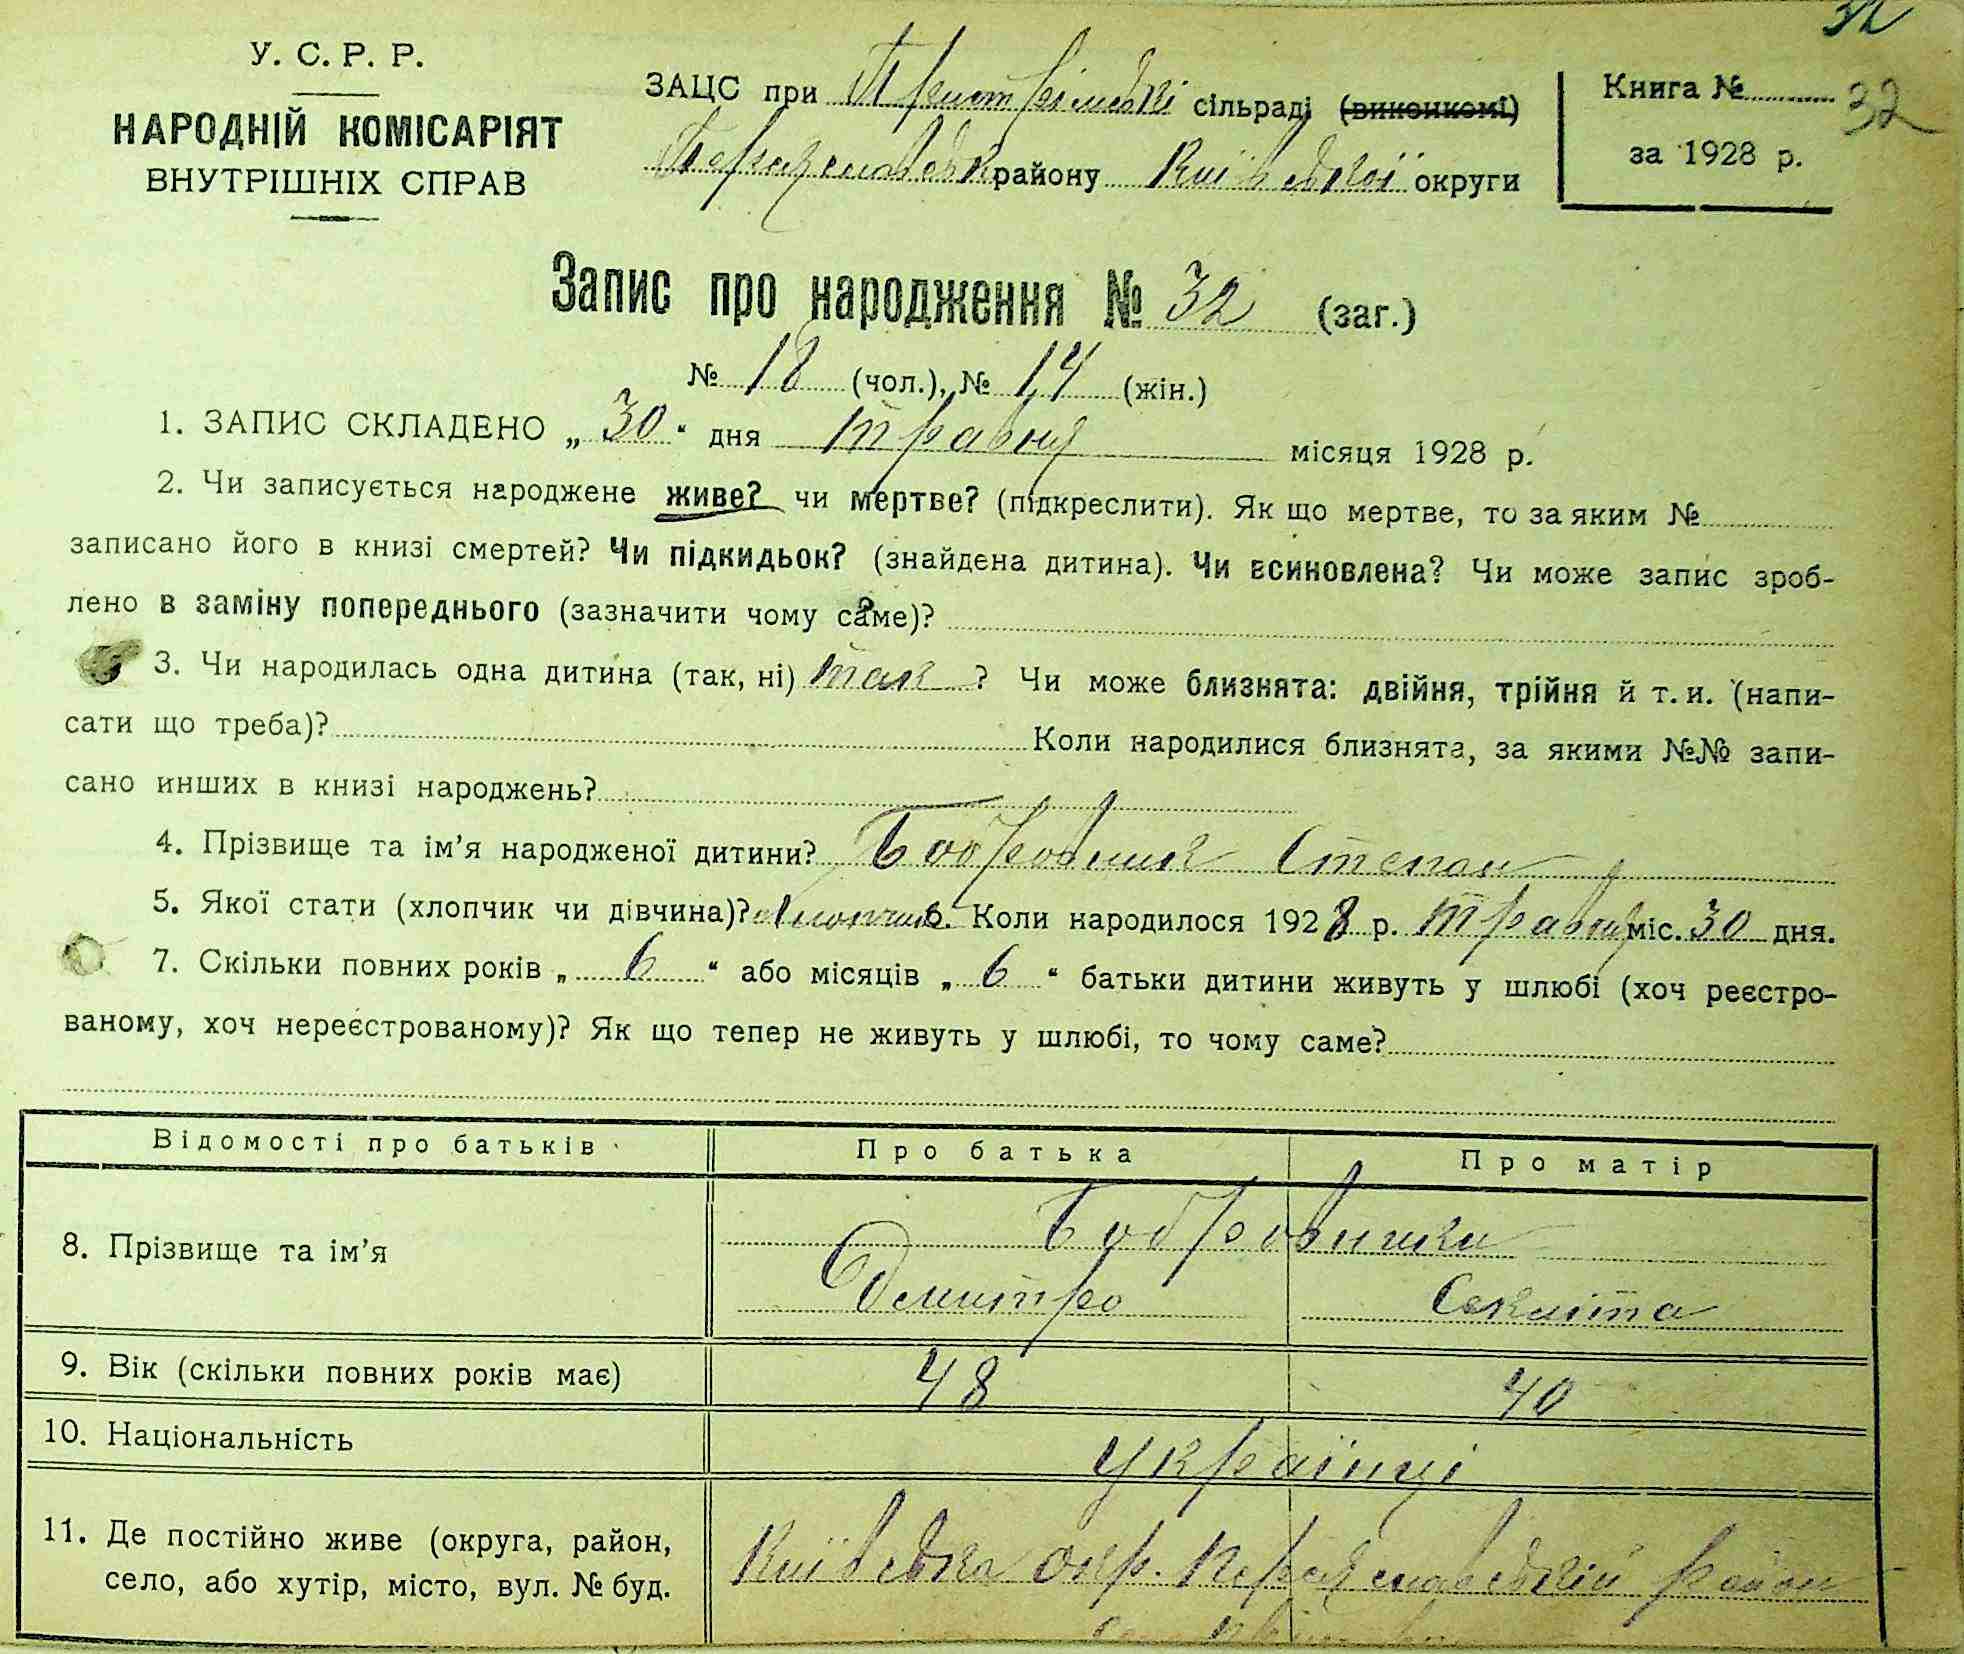 32
У. С. Р. Р.
НАРОДНІЙ КОМІСАРІЯТ
ВНУТРІШНІХ СПРАВ
ЗАЦС при Пристромській сільраді (виконкомі)
Переяславськ району Київської округи
Книга № 32
за 1928 р.
Запис про народження № 32 (заг.)
№ 18 (чол.), № 14 (жін.)
1. ЗАПИС СКЛАДЕНО „ 30 “ дня травня місяця 1928 р.
2. Чи записується народжене живе? чи мертве? (підкреслити). Як що мертве, то за яким №
записано його в книзі смертей? Чи підкидьок? (знайдена дитина). Чи всиновлена? Чи може запис зроб-
лено в заміну попереднього (зазначити чому саме)?
3. Чи народилась одна дитина (так, ні) так ? Чи може близнята: двійня, трійня й т. и. (напи-
сати що треба)? Коли народилися близнята, за якими №№ запи-
сано инших в книзі народжень?
4. Прізвище та ім’я народженої дитини? Бобровник Степан
5. Якої стати (хлопчик чи дівчина)? хлопчик 6. Коли народилося 1928 р. травня міс. 30 дня.
7. Скільки повних років „ 6 “ або місяців „ 6 “ батьки дитини живуть у шлюбі (хоч реєстро-
ваному, хоч нереєстрованому)? Як що тепер не живуть у шлюбі, то чому саме?
Відомості про батьків Про батька Про матір
8. Прізвище та ім’я Бобровники
Дмитро Секлита
9. Вік (скільки повних років має) 48 40
10. Національність Українці
11. Де постійно живе (округа, район,
село, або хутір, місто, вул. № буд.
Київська окр. Переяславський район